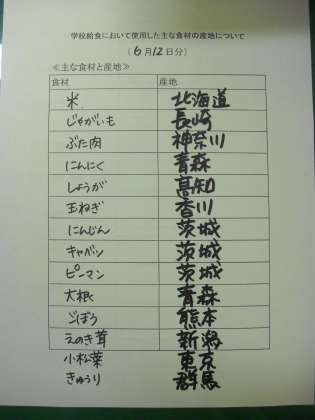 学校給食において使用した主な食材の産地について
(6月12日分)
≪主な食材と産地≫
食材 産地
米 北海道
じゃがいも 長崎
ぶた肉 神奈川
にんにく 青森
しょうが 高知
玉ねぎ 香川
にんじん 茨城
キャベツ 茨城
ピーマン 茨城
大根 青森
ごぼう 熊本
えのき茸 新潟
小松菜 東京
きゅうり 群馬